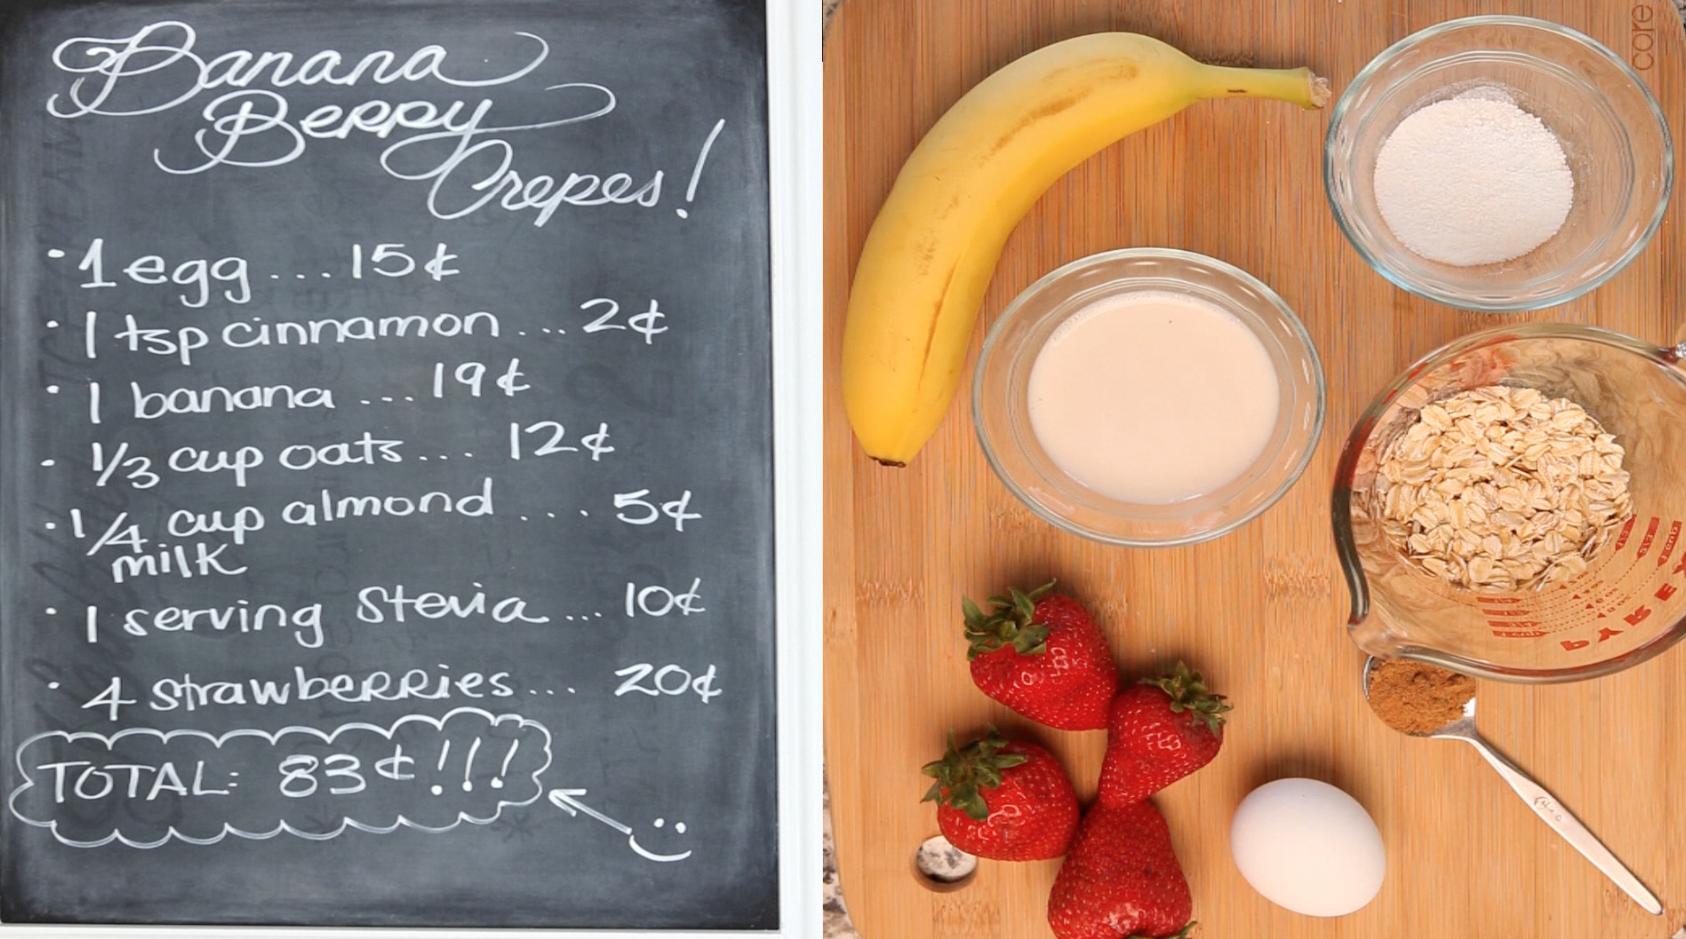 Banana
Berry
Crepes!
• 1 egg ... 15¢
• 1 tsp cinnamon ... 2¢
• 1 banana ... 19¢
• 1/3 cup oats ... 12¢
• 1/4 cup almond ... 5¢
milk
• 1 serving stevia ... 10¢
• 4 strawberries ... 20¢
TOTAL: 83¢!!!
core
PYREX